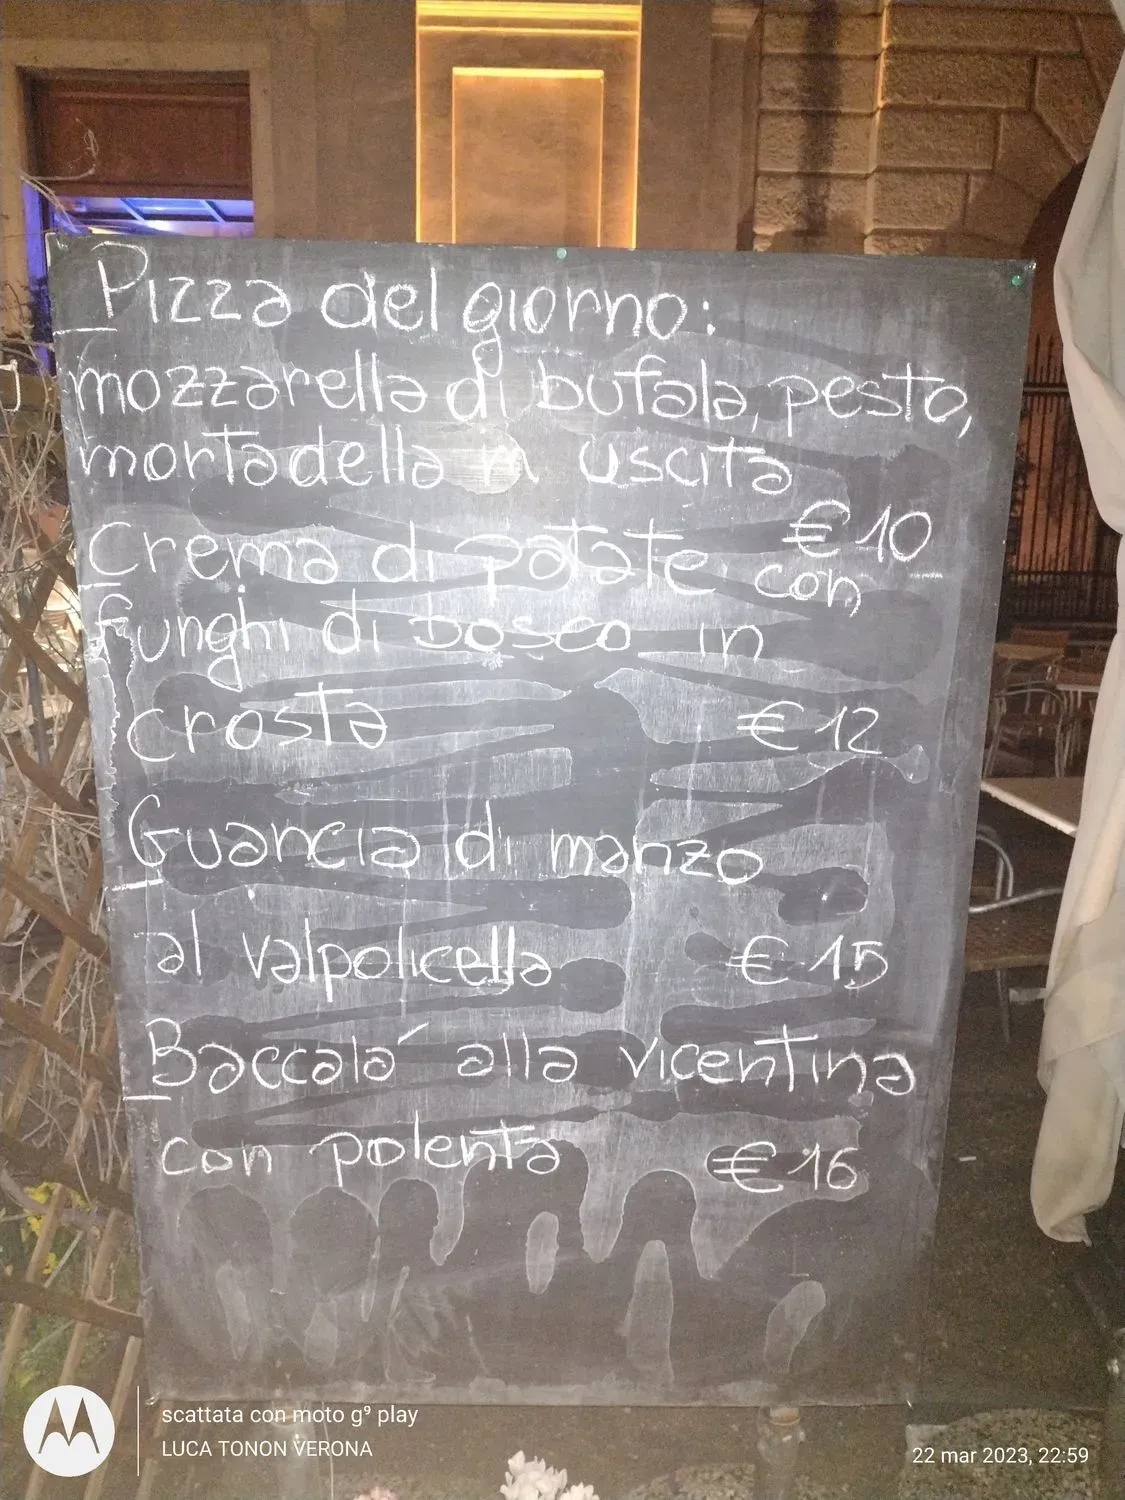 Pizza del giorno:
mozzarella di bufala, pesto,
mortadella in uscita
€ 10
Crema di patate con
funghi di bosco in
crosta € 12
Guancia di manzo
al valpolicella € 15
Baccalá alla vicentina
con polenta € 16
scattata con moto g⁹ play
LUCA TONON VERONA
22 mar 2023, 22:59